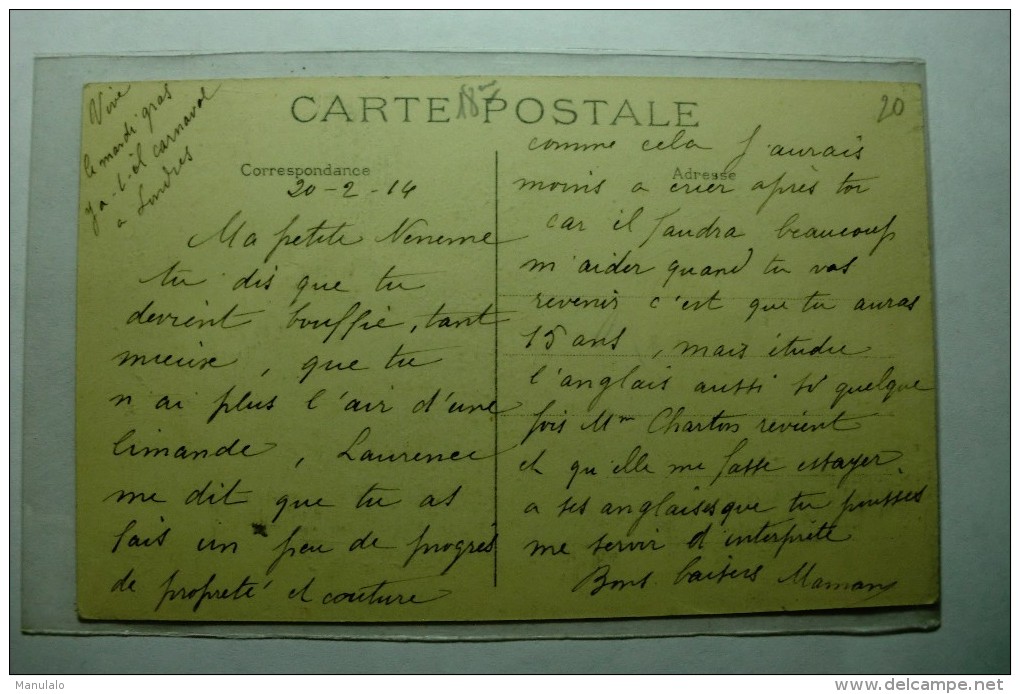 Vive
le mardi gras
y a-t-il carnaval
a Londres
187
20
CARTE POSTALE
Correspondance
20-2-14
Ma petite Neneme
tu dis que tu
devient bouffie, tant
mieux, que tu
n'ai plus l'air d'une
limande, Laurence
me dit que tu as
fais un peu de progrès
de propreté et couture
Adresse
comme cela j'aurais
moins a crier après toi
car il faudra beaucoup
m'aider quand tu vas
revenir c'est que tu auras
15 ans, mais étudie
l'anglais aussi si quelque
fois Mme Charton revient
et qu'elle me fasse essayer
a ses anglaises que tu puisses
me servir d'interprète
Bons baisers Maman
Manulalo
www.delcampe.net